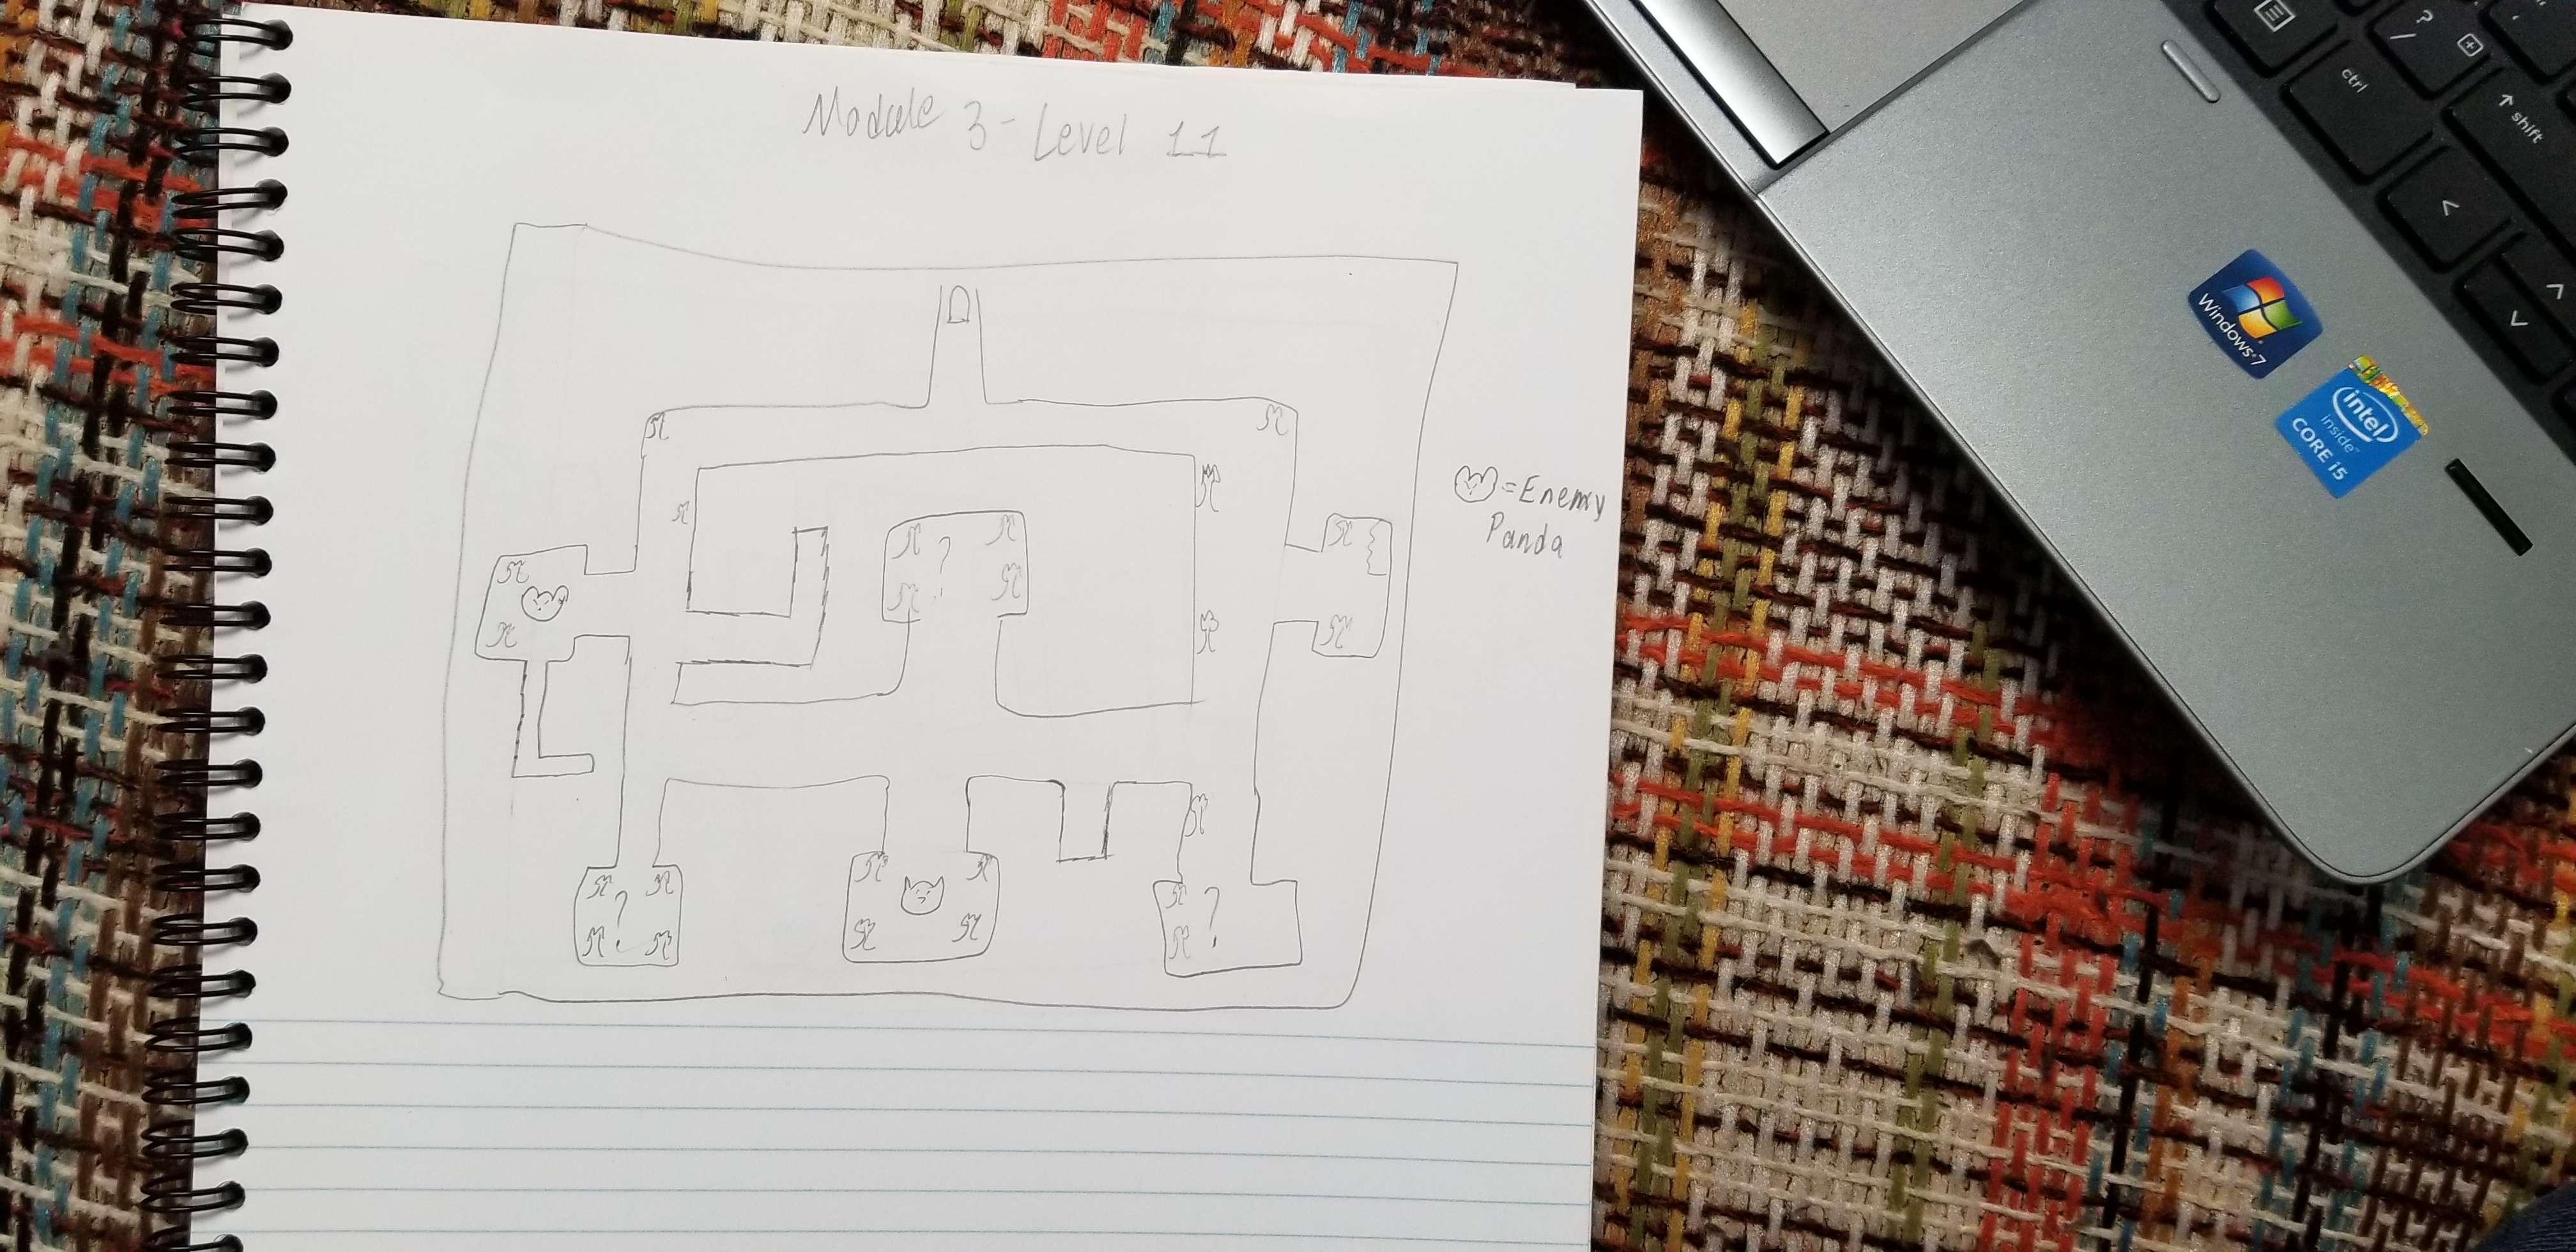 Module 3 - Level 11
= Enemy
Panda
?
?
?
?
/
ctrl
↑ shift
<
^
v
Windows 7
intel
inside™
CORE i5